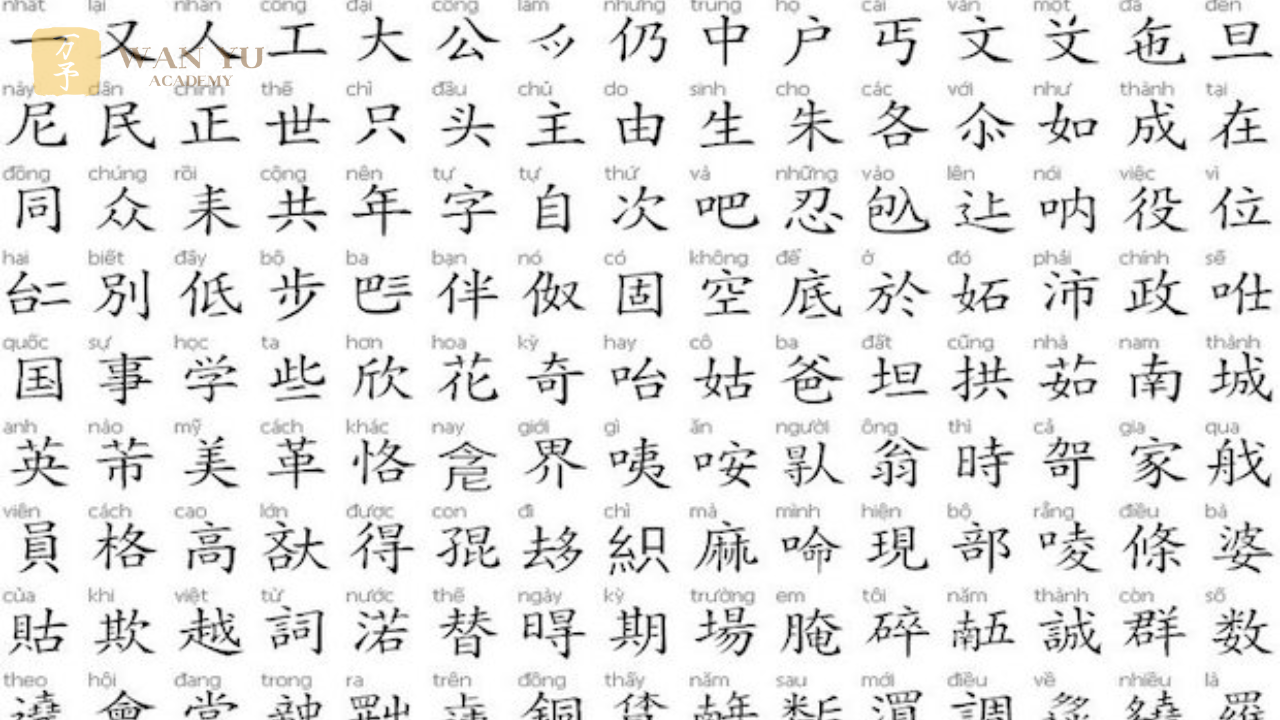 nhất lại nhân công đại công làm những trung họ cái văn một đã đến
一 又 人 工 大 公 仍 中 户 丐 文 𠬠 㐌 旦
WAN YU
ACADEMY
này dân chính thế chỉ đầu chủ do sinh cho các với như thành tại
尼 民 正 世 只 头 主 由 生 朱 各 如 成 在
đồng chúng rồi cộng nên tự tự thứ và những vào lên nói việc vì
同 众 耒 共 年 字 自 次 吧 忍 呐 役 位
hai biết đây bộ ba bạn nó có không để ở đó phải chính sẽ
𠄩 別 低 步 𠀧 伴 伮 固 空 底 於 妬 沛 政 𠱊
quốc sự học ta hơn hoa kỳ hay cô ba đất cũng nhà nam thành
国 事 学 些 欣 花 奇 咍 姑 爸 坦 拱 茹 南 城
anh nào mỹ cách khác nay giới gì ăn người ông thì cả gia qua
英 芇 美 革 恪 界 咦 咹 翁 時 哿 家 戈
viên cách cao lớn được con đi chỉ mà mình hiện bộ rằng điều bà
員 格 高 得 𡥵 𠫾 織 麻 命 現 部 唛 條 婆
của khi việt từ nước thế ngày kỳ trường em tôi năm thành còn số
貼 欺 越 詞 渃 替 𣈜 期 場 腌 碎 𠄼 誠 群 数
theo hội đang trong ra trên đồng thấy năm sau mới điều về nhiều là
遶 會 當 銅 調 羅